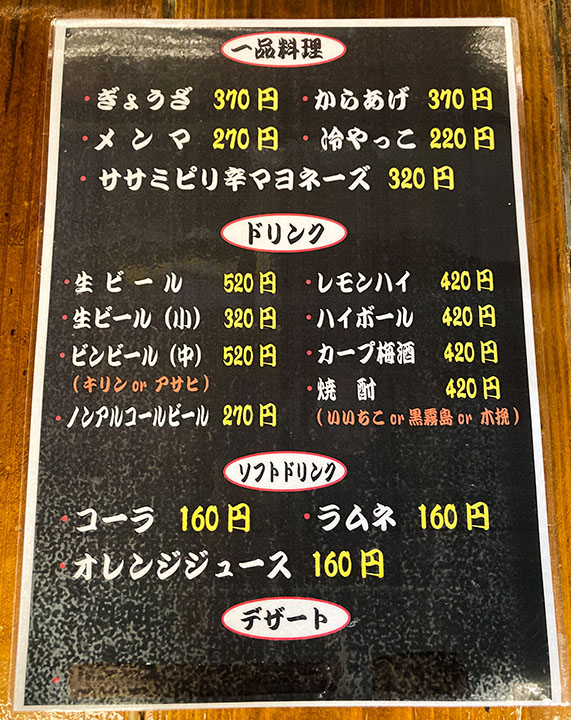 一品料理
・ぎょうざ 370円 ・からあげ 370円
・メンマ 270円 ・冷やっこ 220円
・ササミピリ辛マヨネーズ 320円
ドリンク
・生ビール 520円 ・レモンハイ 420円
・生ビール（小） 320円 ・ハイボール 420円
・ビンビール（中） 520円 ・カープ梅酒 420円
（キリン or アサヒ） ・焼酎 420円
・ノンアルコールビール 270円 （いいちこ or 黒霧島 or 木挽）
ソフトドリンク
・コーラ 160円 ・ラムネ 160円
・オレンジジュース 160円
デザート